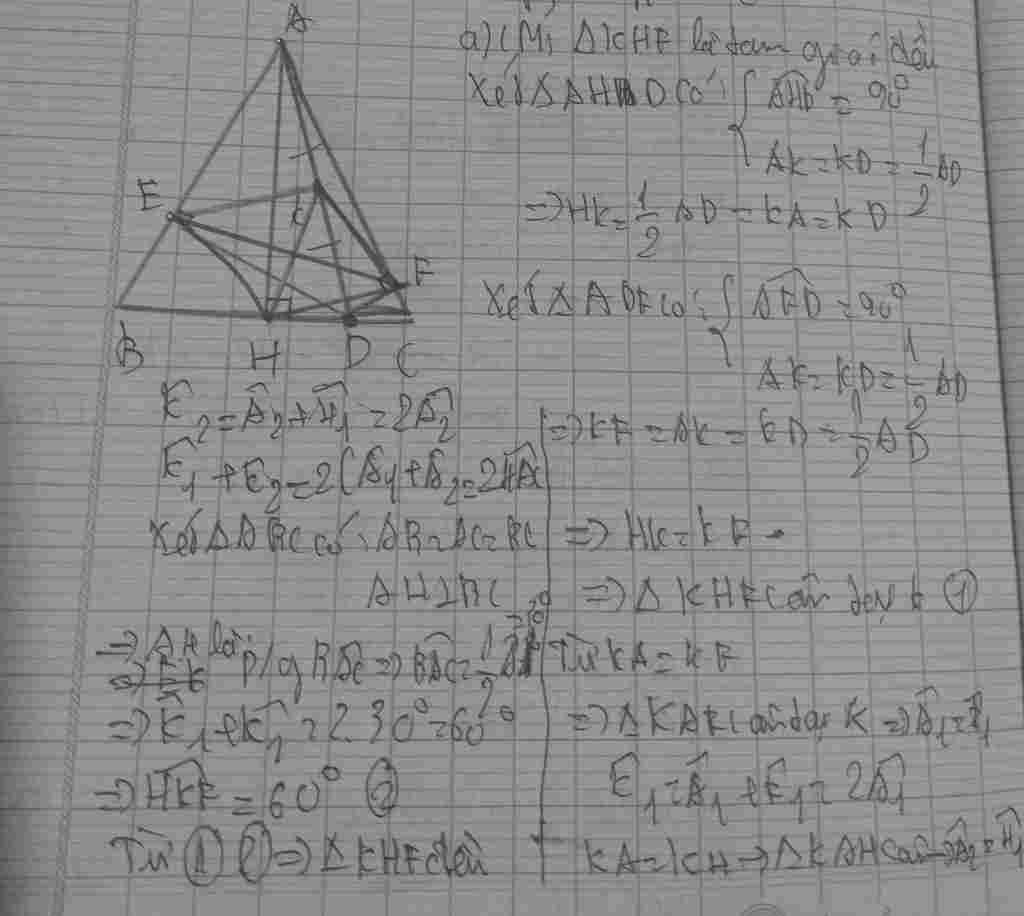 A
E
K
F
B H D C
a) CM: ΔKHF là tam giác đều
Xét ΔAHD có: { \widehat{AHD} = 90°
AK = KD = \frac{1}{2}AD
=> HK = \frac{1}{2} AD = KA = KD
Xét ΔADF có: { \widehat{AFD} = 90°
AK = KD = \frac{1}{2} AD
=> KF = AK = KD = \frac{1}{2}AD
=> HK = KF
=> ΔKHF cân tại K ①
Từ KA = KF
=> ΔKAF cân tại K => \widehat{A}_1 = \widehat{F}_1
\widehat{K}_1 = \widehat{A}_1 + \widehat{F}_1 = 2\widehat{A}_1
KA = KH => ΔKAH cân => \widehat{A}_2 = \widehat{H}_1
\widehat{K}_2 = \widehat{A}_2 + \widehat{H}_1 = 2\widehat{A}_2
\widehat{K}_1 + \widehat{K}_2 = 2(\widehat{A}_1 + \widehat{A}_2 = 2\widehat{HAC}
Xét ΔABC có: AB = AC = BC
AH ⊥ BC
=> AH là p/g \widehat{BAC} => \widehat{BAC} = \frac{1}{2}
=> \widehat{K}_1 + \widehat{K}_2 = 2.30° = 60°
=> \widehat{HKF} = 60° ②
Từ ① ② => ΔKHF đều